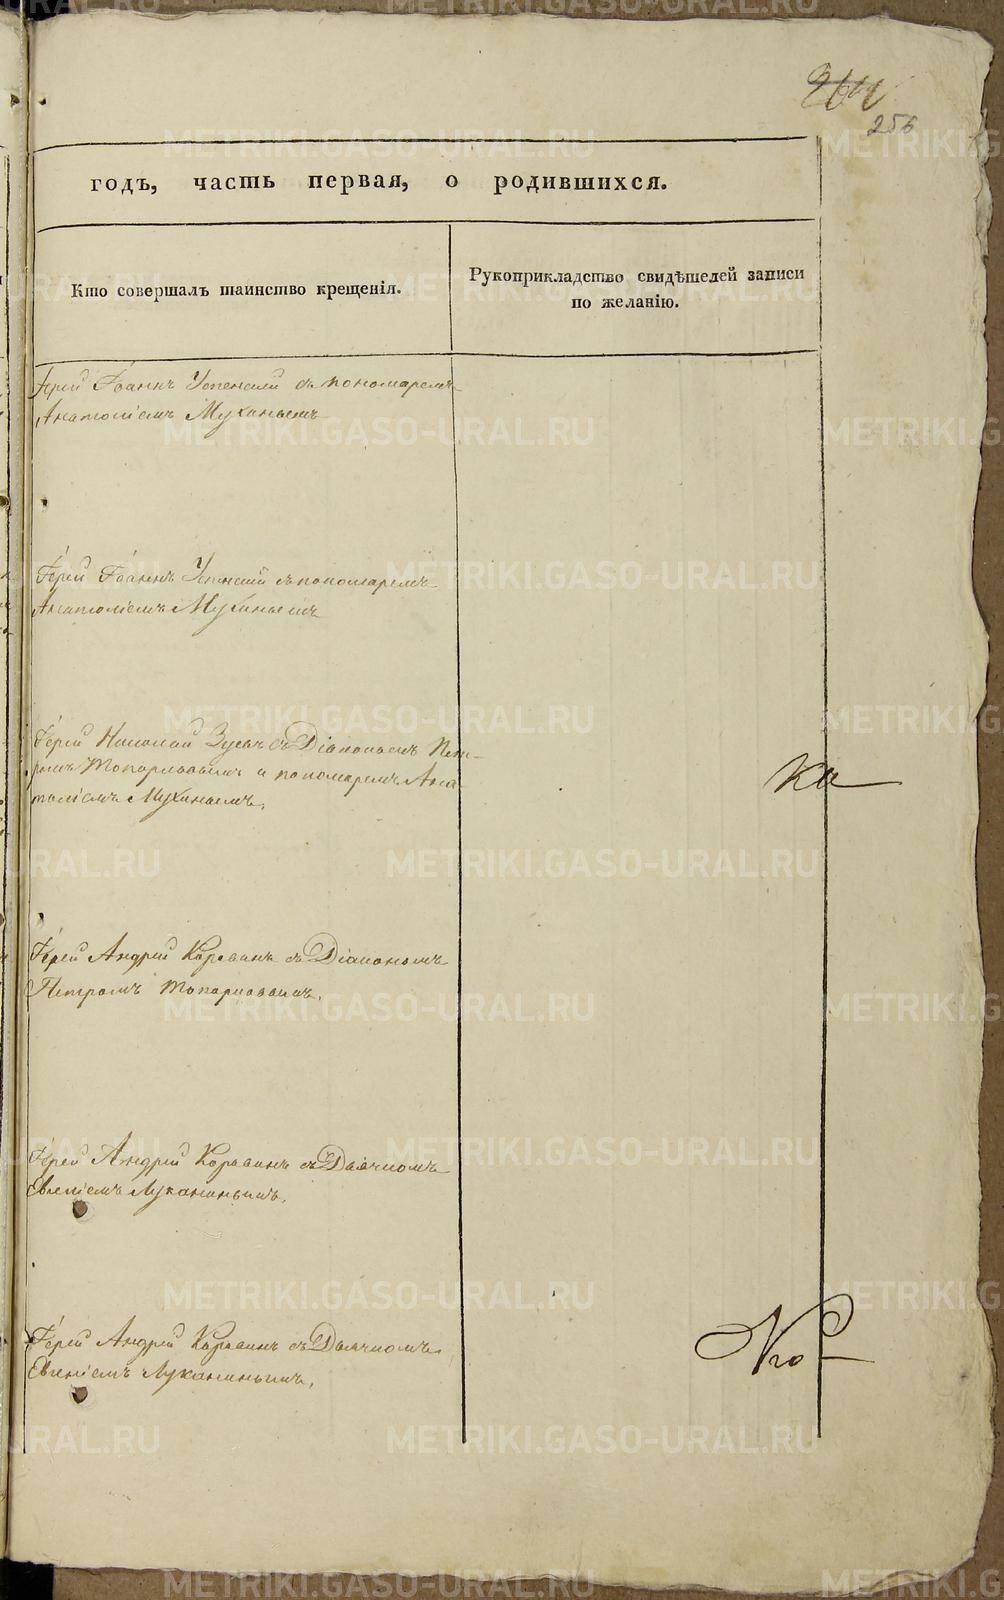 264
256
годъ, часть первая, о родившихся.
Кто совершалъ таинство крещенія.
Рукоприкладство свидѣтелей записи
по желанію.
Іерей Іоаннъ Успенскій съ пономаремъ
Анатоліемъ Мухинымъ
Іерей Іоаннъ Успенскій съ пономаремъ
Анатоліемъ Мухинымъ
Іерей Николай Зуевъ съ Діакономъ Пет-
ромъ Топорковымъ и пономаремъ Ана-
толіемъ Мухинымъ.
ки
Іерей Андрей Коровинъ съ Діакономъ
Петромъ Топорковымъ.
Іерей Андрей Коровинъ съ Дьячкомъ
Евгеніемъ Луканинымъ.
Іерей Андрей Коровинъ съ Дьячкомъ
Евгеніемъ Луканинымъ.
METRIKI.GASO-URAL.RU